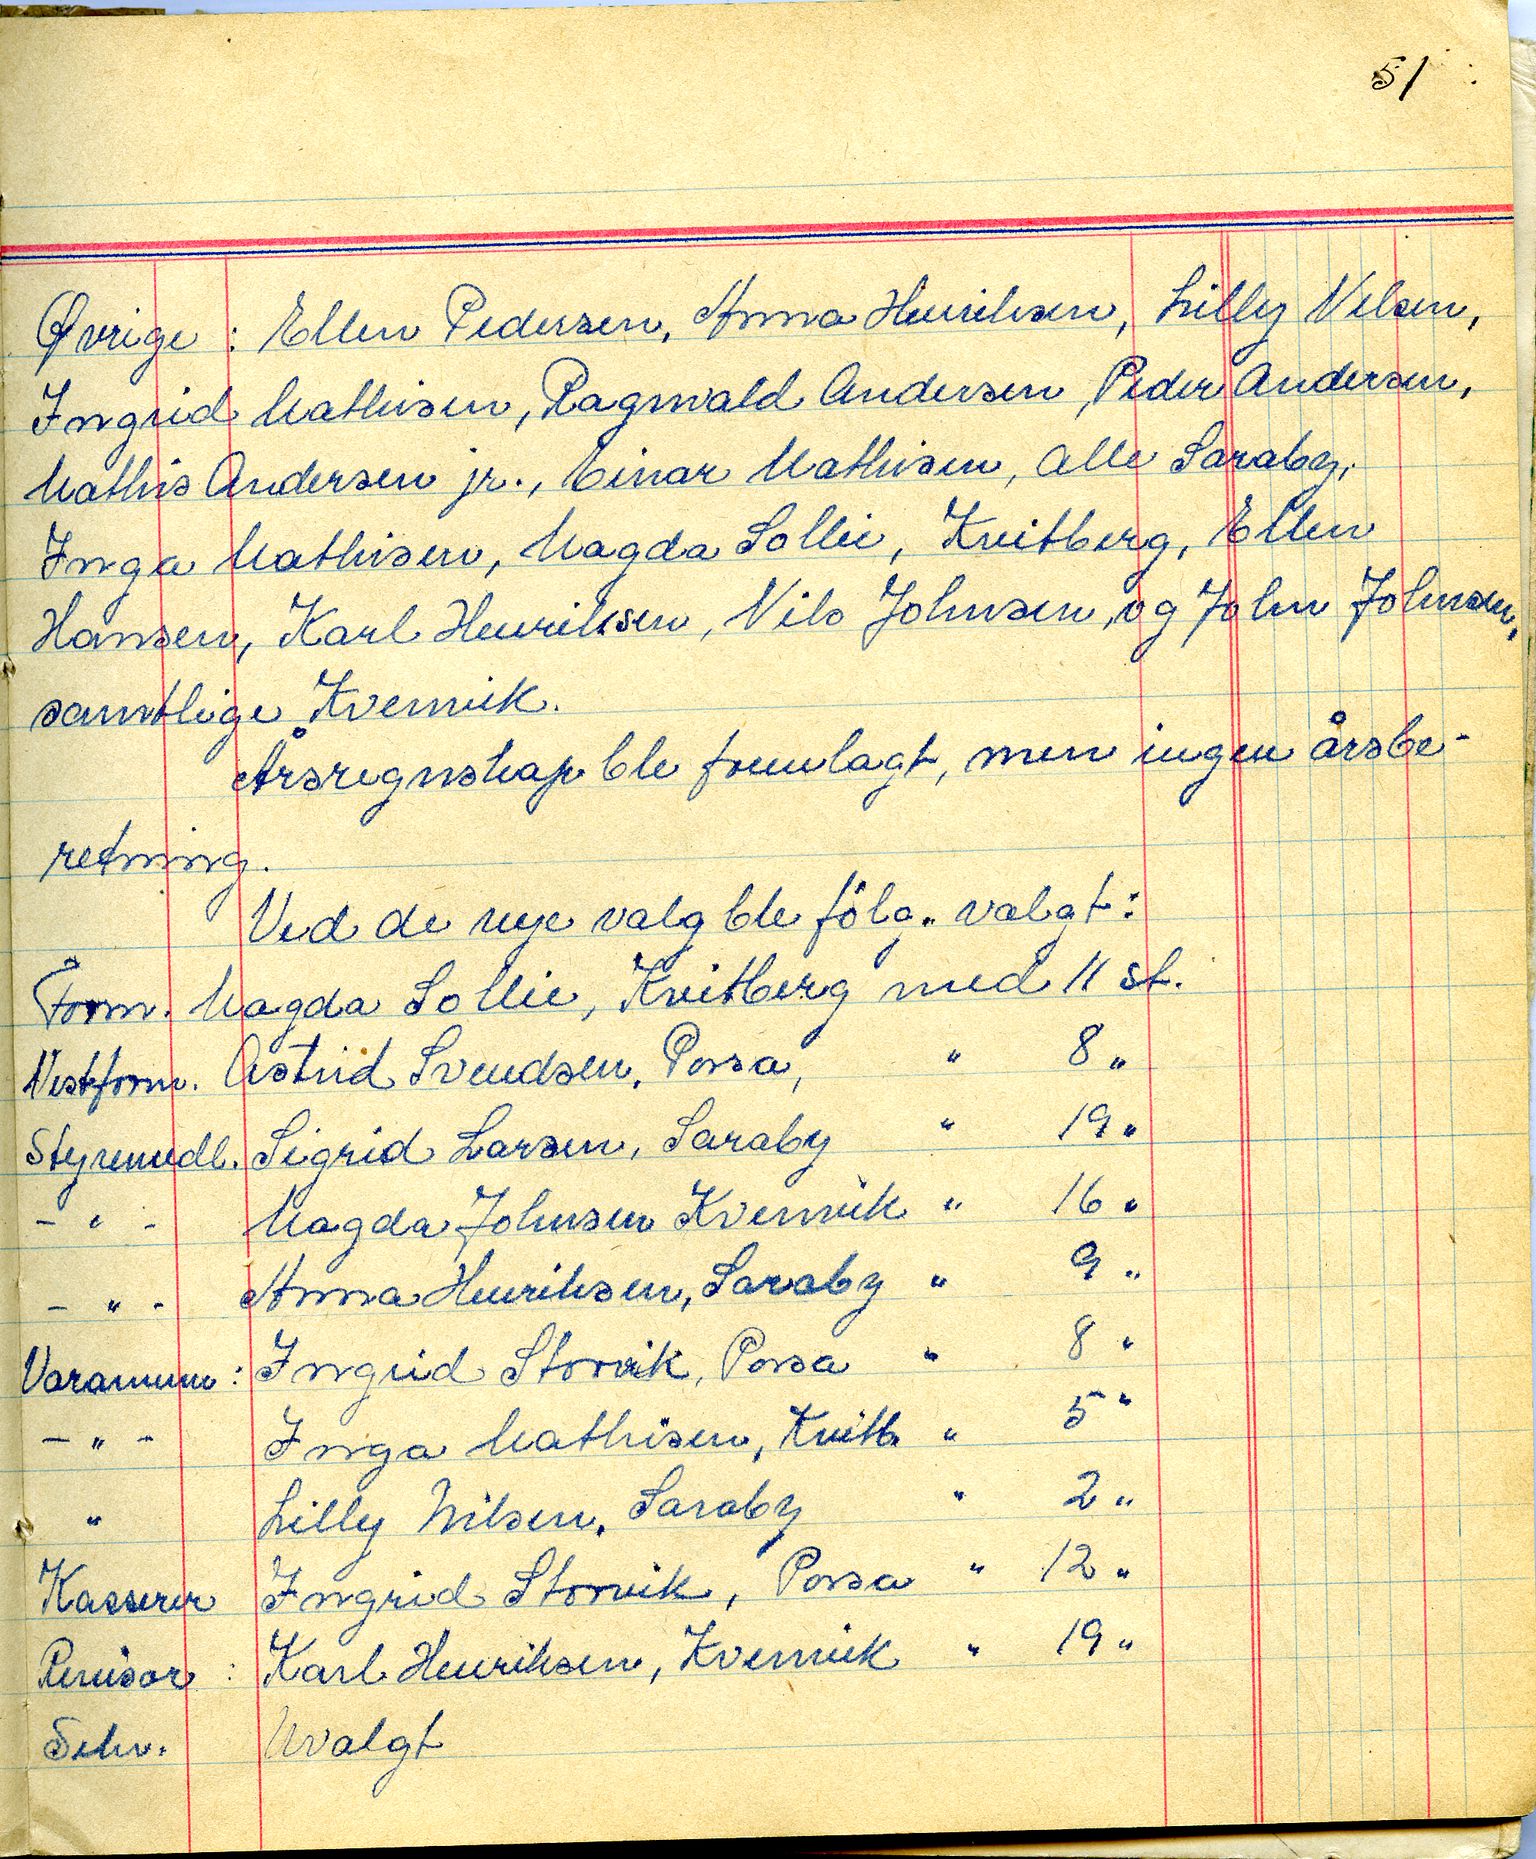 51
Øvrige : Ellen Pedersen, Anna Henriksen, Lilly Nilsen,
Ingrid Mathisen, Ragnvald Andersen, Peder Andersen,
Mathis Andersen jr., Einar Mathisen, alle Saraby,
Inga Mathisen, Magda Sollie, Kvitberg, Ellen
Hansen, Karl Henriksen, Nils Johnsen, og John Johnsen,
samtlige Kvernvik.
Årsregnskap ble fremlagt, men ingen årsbe-
retning.
Ved de nye valg ble følg. valgt:
Form. Magda Sollie, Kvitberg med 11 st.
Nestform. Astrid Svendsen, Porsa, " 8 "
Styremedl. Sigrid Larsen, Saraby " 19 "
- " - Magda Johnsen Kvernvik " 16 "
- " - Anna Henriksen, Saraby " 9 "
Varamenn : Ingrid Storvik, Porsa " 8 "
- " - Inga Mathisen, Kvitb. " 5 "
" Lilly Nilsen, Saraby " 2 "
Kasserer Ingrid Storvik, Porsa " 12 "
Revisor : Karl Henriksen, Kvernvik " 19 "
Sekr. Uvalgt